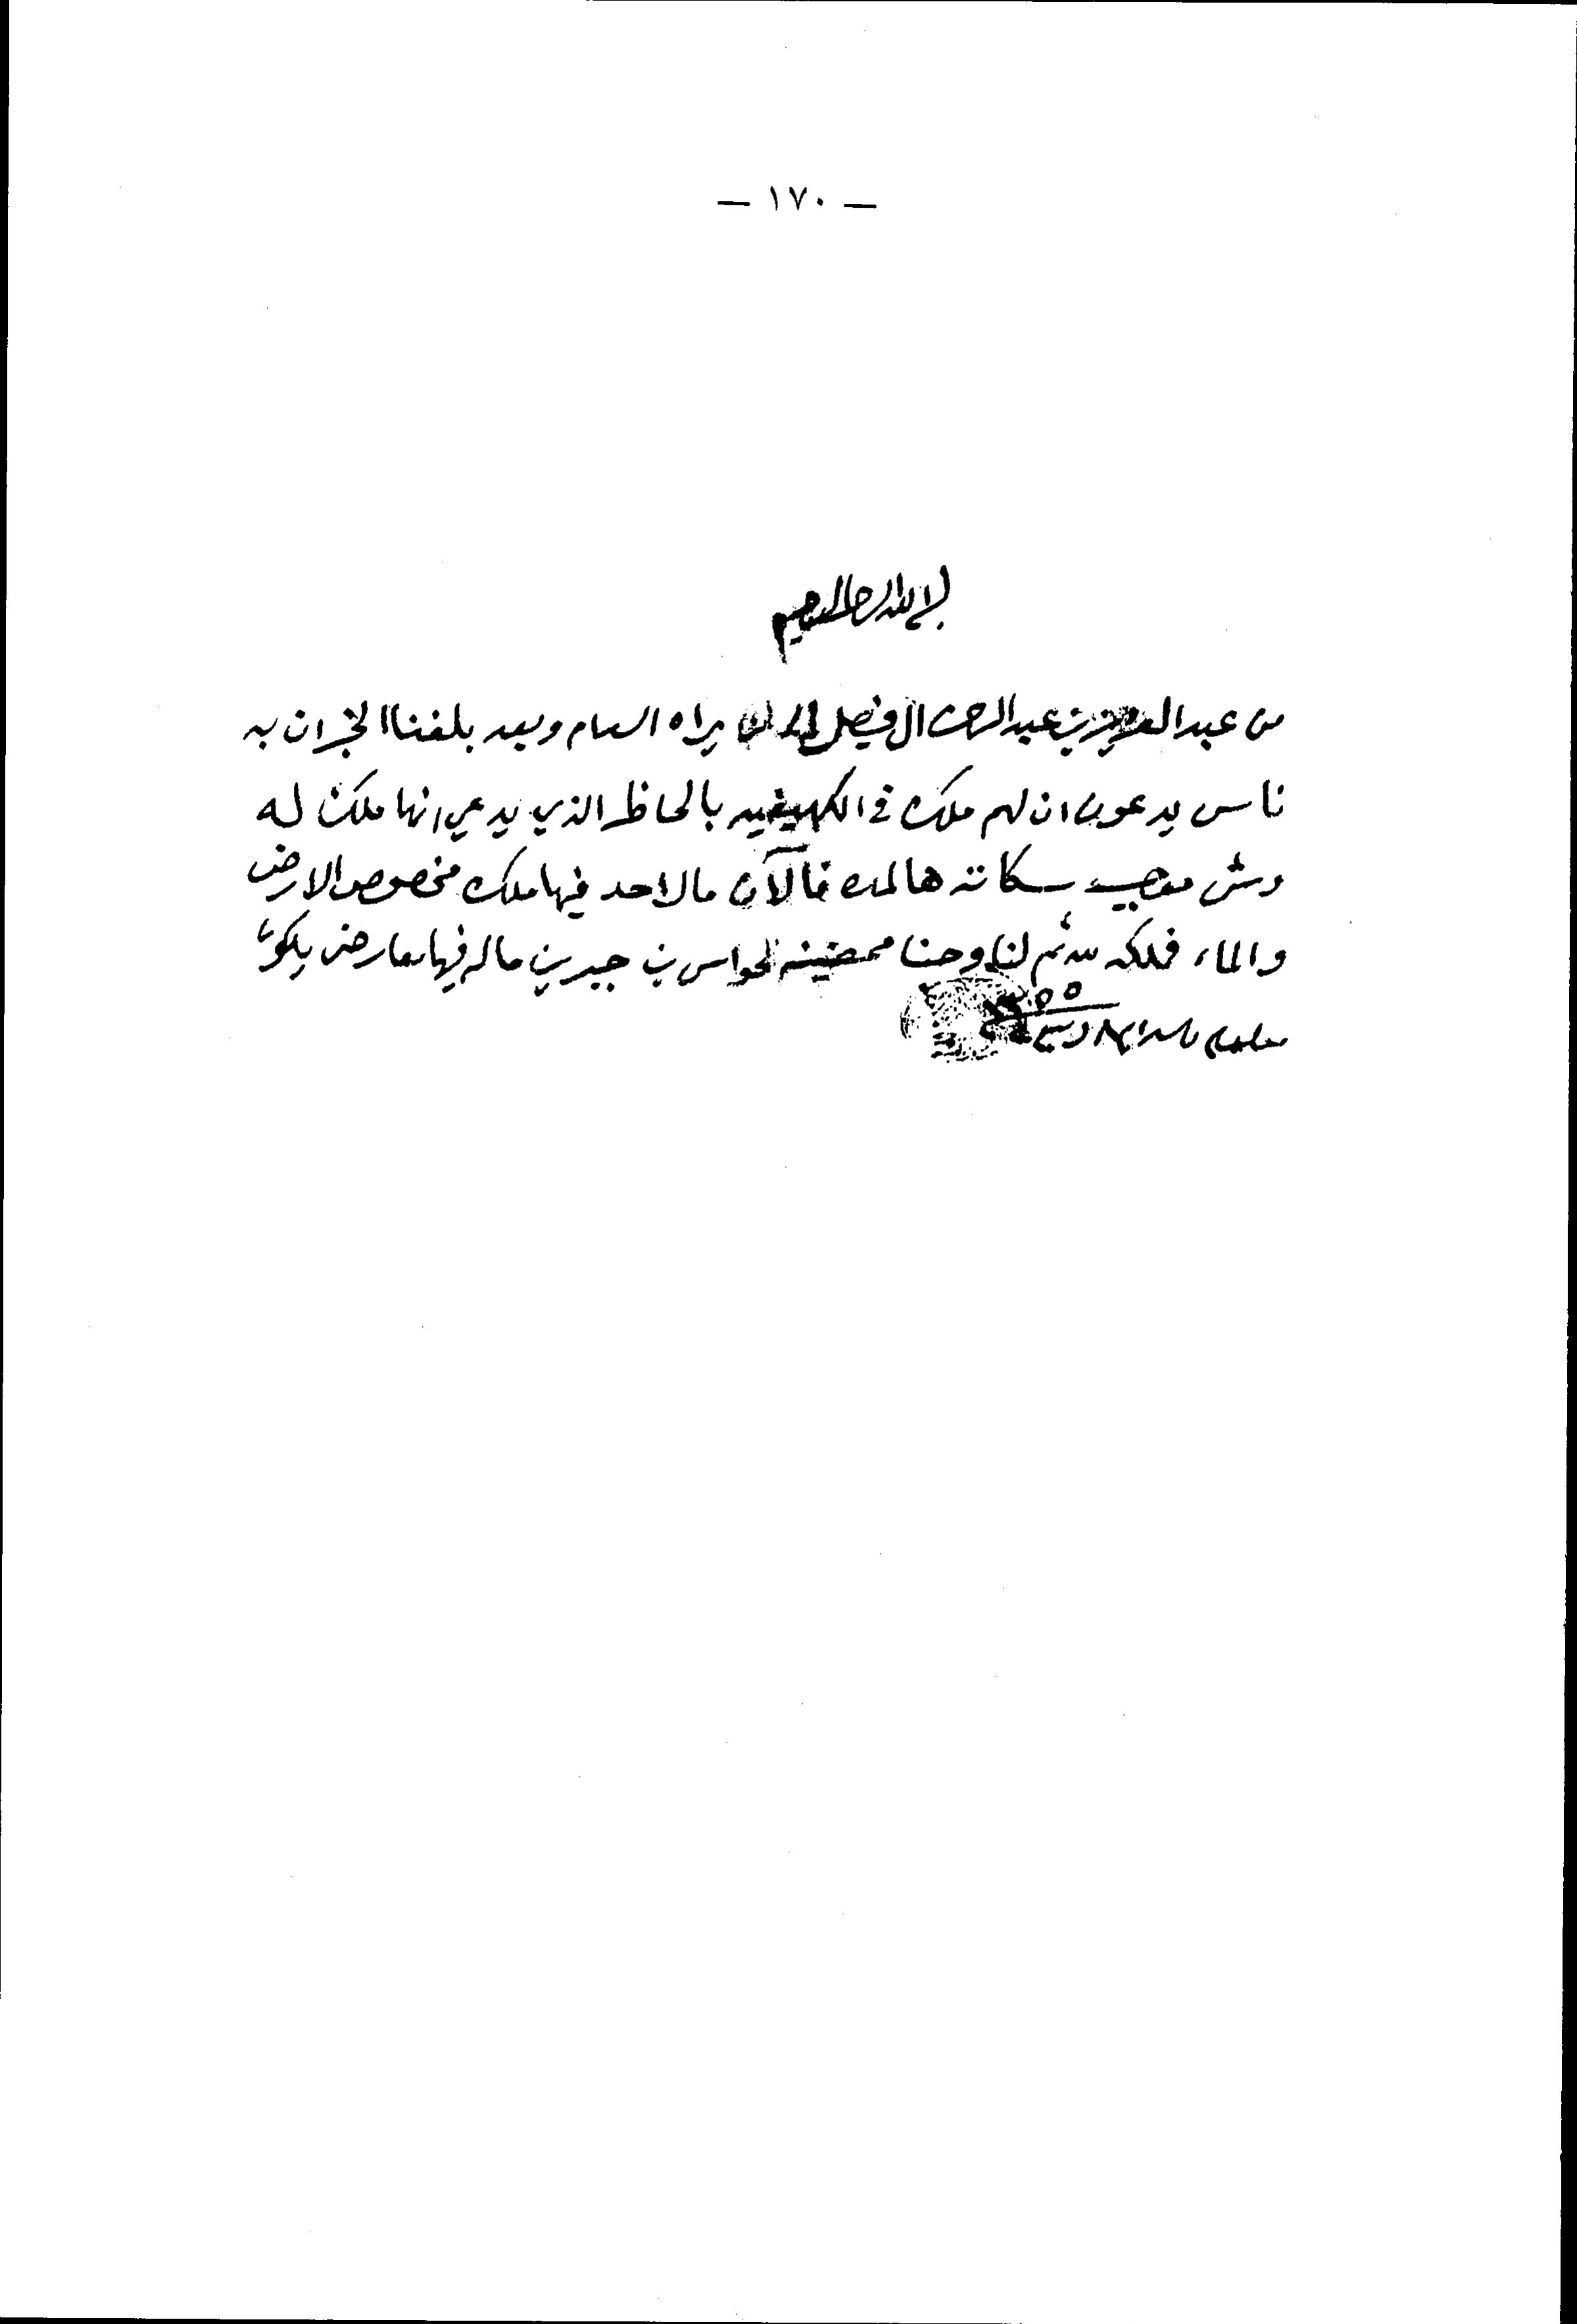 — ١٧٠ —
بسم الله الرحمن الرحيم
من عبدالعزيز بن عبدالرحمن ال فيصل الى من يراه السلام وبعد بلغنا الخبر ان به
ناس يدعون ان لهم ملك في الكهيفيه بالحاظر الذي يدعي انها ملك له
وش موجب سكاته هالمده فالآن ما لاحد فيها ملك مخصوص الارض
والماء فملكه لله ثم لنا وحنا ممضينه لحواس بن جبرين ماله فيها معارض يكون
معلوم والسلام